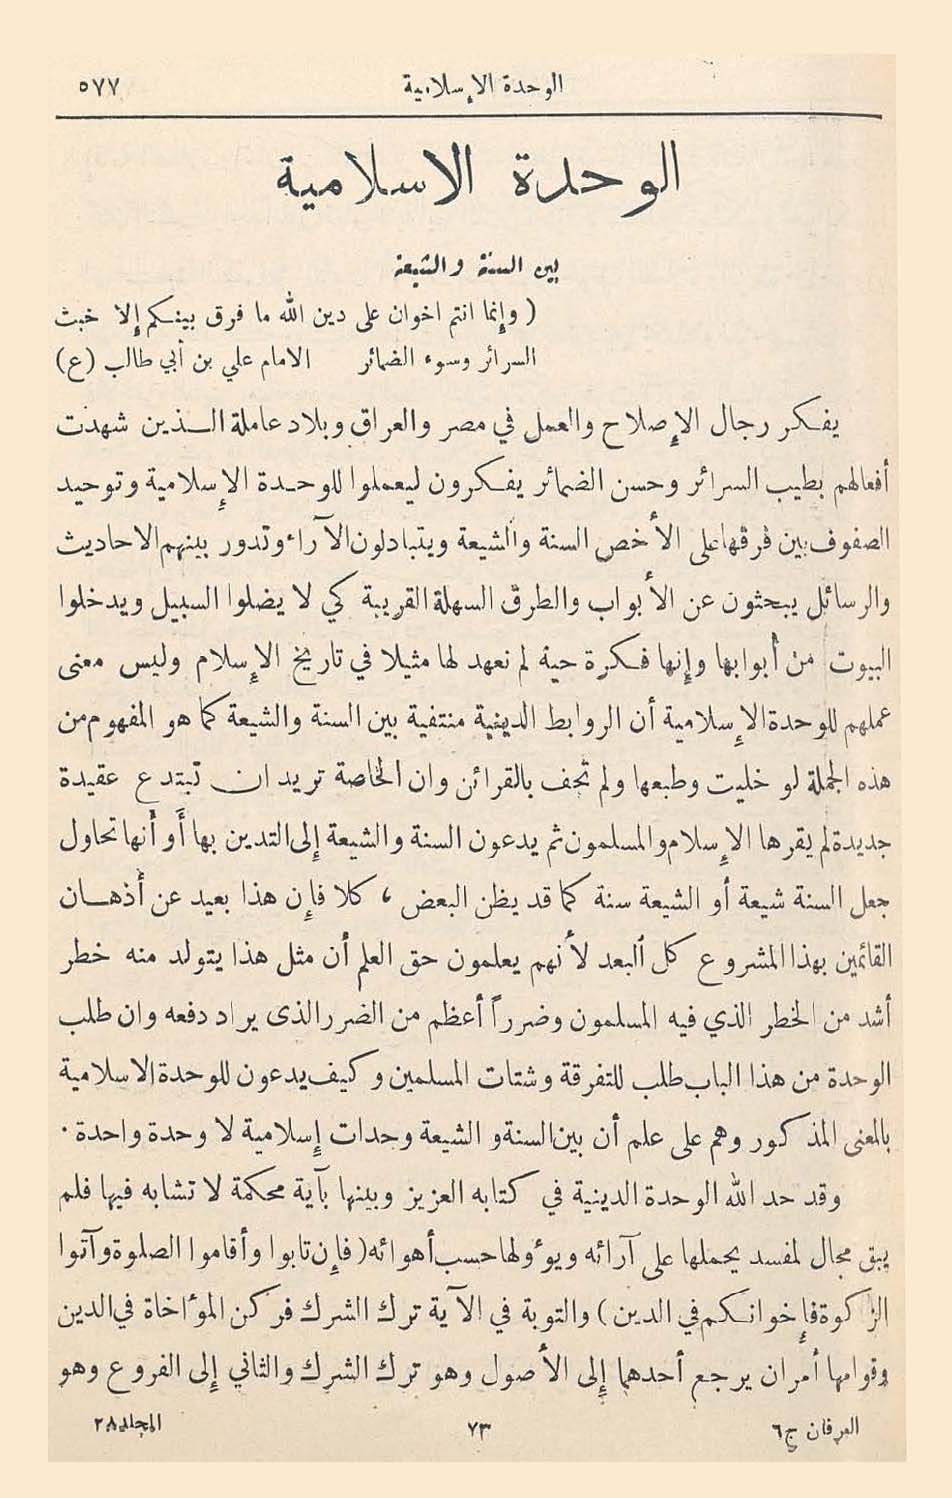 الوحدة الإسلامية ٥٧٧
الوحدة الاسلامية
بين السنة والشيعة
( وإنما انتم اخوان على دين الله ما فرق بينكم إلا خبث
السرائر وسوء الضمائر الامام علي بن أبي طالب (ع)
يفكر رجال الإصلاح والعمل في مصر والعراق وبلاد عاملة الذين شهدت
أفعالهم بطيب السرائر وحسن الضمائر يفكرون ليعملوا للوحدة الإسلامية وتوحيد
الصفوف بين فرقها على الأخص السنة والشيعة ويتبادلون الآراء وتدور بينهم الاحاديث
والرسائل يبحثون عن الأبواب والطرق السهلة القريبة كي لا يضلوا السبيل ويدخلوا
البيوت من أبوابها وإنها فكرة حية لم نعهد لها مثيلا في تاريخ الإسلام وليس معنى
عملهم للوحدة الإسلامية أن الروابط الدينية منتفية بين السنة والشيعة كما هو المفهوم من
هذه الجملة لو خليت وطبعها ولم تحف بالقرائن وان الخاصة تريد ان تبتدع عقيدة
جديدة لم يقرها الإسلام والمسلمون ثم يدعون السنة والشيعة إلى التدين بها أو أنها تحاول
جعل السنة شيعة أو الشيعة سنة كما قد يظن البعض ، كلا فإن هذا بعيد عن أذهان
القائمين بهذا المشروع كل البعد لأنهم يعلمون حق العلم أن مثل هذا يتولد منه خطر
أشد من الخطر الذي فيه المسلمون وضرراً أعظم من الضرر الذى يراد دفعه وان طلب
الوحدة من هذا الباب طلب للتفرقة وشتات المسلمين وكيف يدعون للوحدة الاسلامية
بالمعنى المذكور وهم على علم أن بين السنة و الشيعة وحدات إسلامية لا وحدة واحدة .
وقد حد الله الوحدة الدينية في كتابه العزيز وبينها بآية محكمة لا تشابه فيها فلم
يبق مجال لمفسد يحملها على آرائه ويؤولها حسب أهوائه ( فإن تابوا وأقاموا الصلوة وآتوا
الزكوة فإخوانكم في الدين ) والتوبة في الآية ترك الشرك فركن المؤاخاة في الدين
وقوامها أمران يرجع أحدهما إلى الأصول وهو ترك الشرك والثاني إلى الفروع وهو
العرفان ج٦ ٧٣ المجلد ٢٨